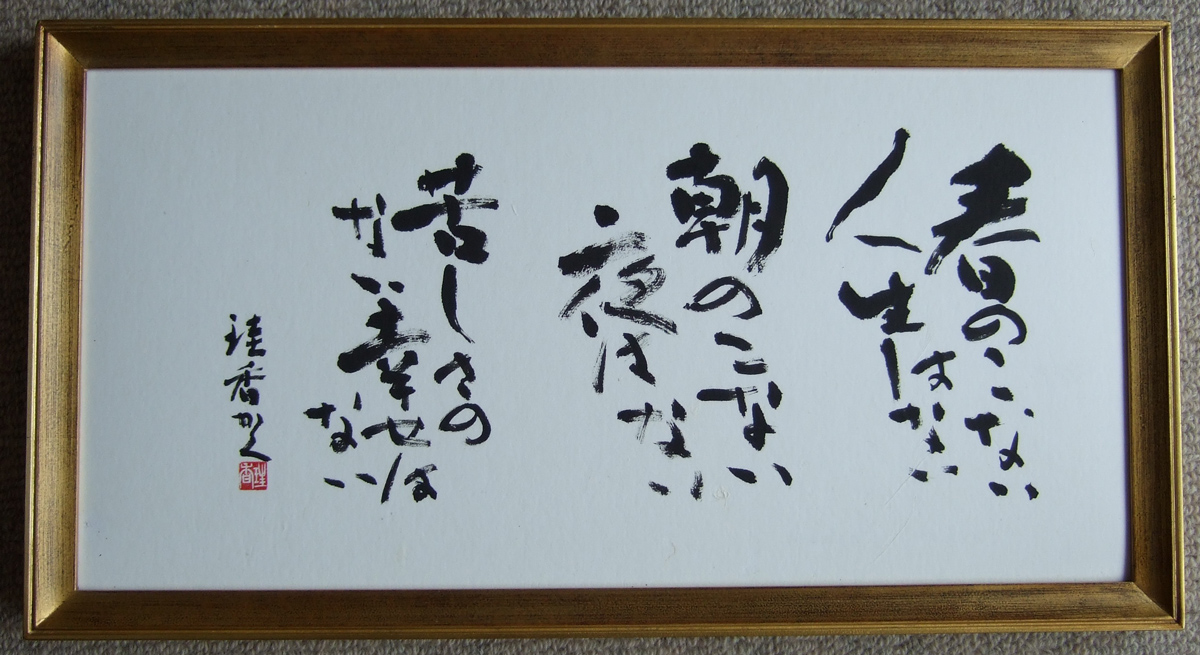 春のこない
人生はない
朝のこない
夜はない
苦しさの
ない幸せは
ない
珪香かく
珪香